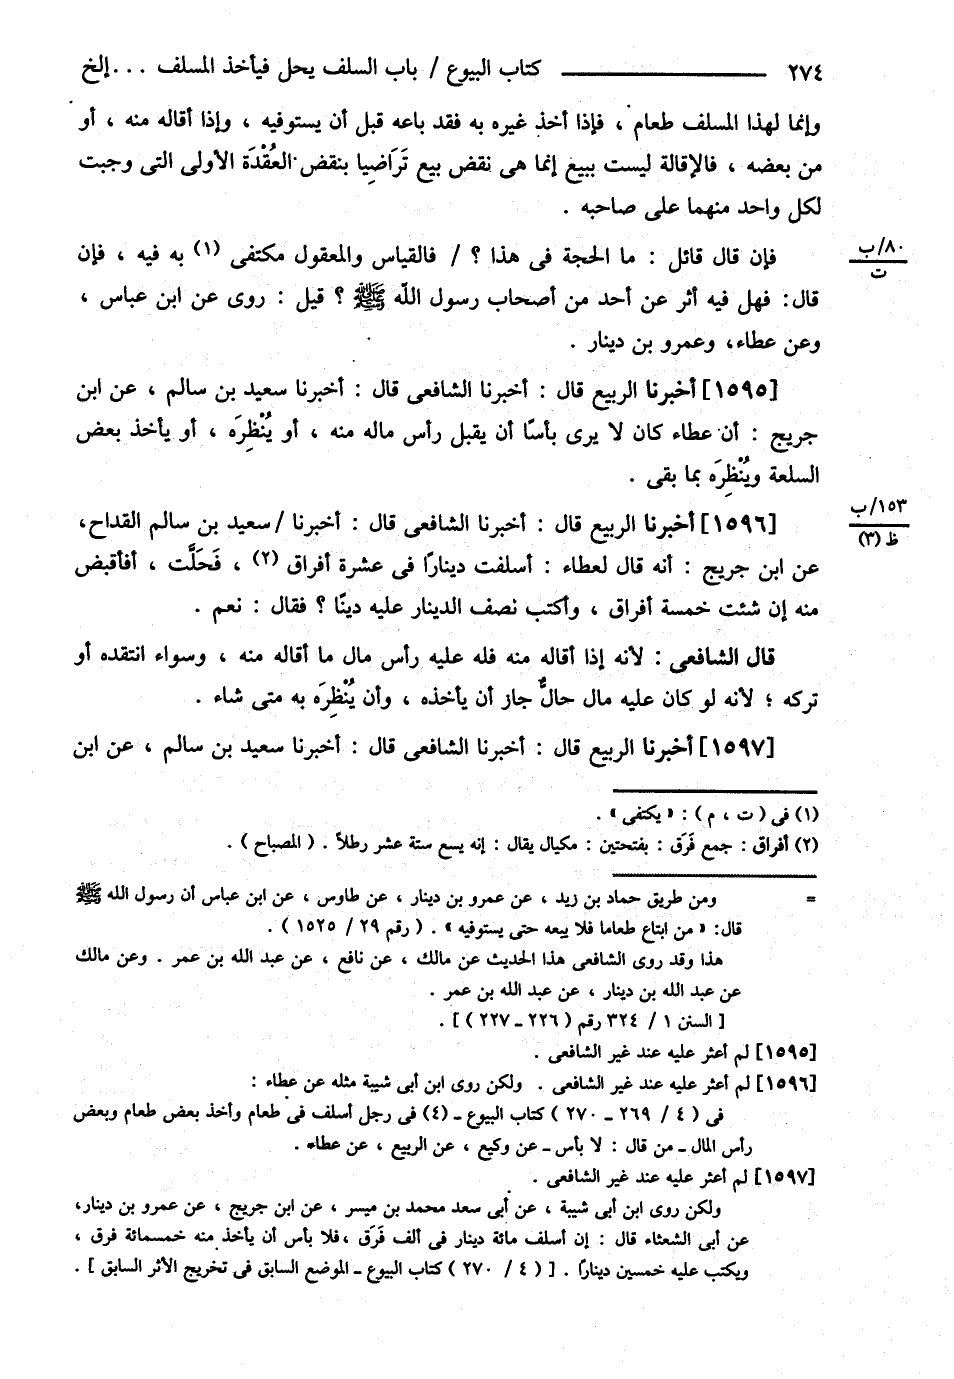 ٢٧٤ ـــــــــ كتاب البيوع / باب السلف يحل فيأخذ المسلف . . . إلخ
وإنما لهذا المسلف طعام ، فإذا أخذ غيره به فقد باعه قبل أن يستوفيه ، وإذا أقاله منه ، أو
من بعضه ، فالإقالة ليست ببيع إنما هى نقض بيع تَرَاضِيا بنقض العُقْدَة الأولى التى وجبت
لكل واحد منهما على صاحبه .
فإن قال قائل : ما الحجة فى هذا ؟ / فالقياس والمعقول مكتفى (١) به فيه ، فإن
٨٠/ب
ت
قال: فهل فيه أثر عن أحد من أصحاب رسول اللّه ﷺ ؟ قيل : روى عن ابن عباس ،
وعن عطاء، وعمرو بن دينار .
[١٥٩٥] أخبرنا الربيع قال : أخبرنا الشافعى قال : أخبرنا سعيد بن سالم ، عن ابن
جريج : أن عطاء كان لا يرى بأسًا أن يقبل رأس ماله منه ، أو يُنْظِرَه ، أو يأخذ بعض
السلعة ويُنْظِرَه بما بقى .
[١٥٩٦] أخبرنا الربيع قال : أخبرنا الشافعى قال : أخبرنا /سعيد بن سالم القداح،
١٥٣/ب
ظ (٣)
عن ابن جريج : أنه قال لعطاء : أسلفت دينارًا فى عشرة أفراق (٢) ، فَحَلَّت ، أفأقبض
منه إن شئت خمسة أفراق ، وأكتب نصف الدينار عليه دينًا ؟ فقال : نعم .
قال الشافعى : لأنه إذا أقاله منه فله عليه رأس مال ما أقاله منه ، وسواء انتقده أو
تركه ؛ لأنه لو كان عليه مال حالٌّ جاز أن يأخذه ، وأن يُنْظِرَه به متى شاء .
[١٥٩٧] أخبرنا الربيع قال : أخبرنا الشافعى قال : أخبرنا سعيد بن سالم ، عن ابن
(١) فى ( ت ، م ) : « يكتفى » .
(٢) أفراق : جمع فَرَق : بفتحتين : مكيال يقال : إنه يسع ستة عشر رطلاً . ( المصباح ) .
= ومن طريق حماد بن زيد ، عن عمرو بن دينار ، عن طاوس ، عن ابن عباس أن رسول الله ﷺ
قال: « من ابتاع طعاما فلا يبعه حتى يستوفيه » . ( رقم ٢٩ / ١٥٢٥ ) .
هذا وقد روى الشافعى هذا الحديث عن مالك ، عن نافع ، عن عبد الله بن عمر . وعن مالك
عن عبد الله بن دينار ، عن عبد الله بن عمر .
[ السنن ١ / ٣٢٤ رقم ( ٢٢٦ ـ ٢٢٧ ) ] .
[١٥٩٥] لم أعثر عليه عند غير الشافعى .
[١٥٩٦] لم أعثر عليه عند غير الشافعى . ولكن روى ابن أبى شيبة مثله عن عطاء :
فى ( ٤ / ٢٦٩ ـ ٢٧٠ ) كتاب البيوع ـ (٤) فى رجل أسلف فى طعام وأخذ بعض طعام وبعض
رأس المال ـ من قال : لا بأس ـ عن وكيع ، عن الربيع ، عن عطاء .
[١٥٩٧] لم أعثر عليه عند غير الشافعى .
ولكن روى ابن أبى شيبة ، عن أبى سعد محمد بن ميسر ، عن ابن جريج ، عن عمرو بن دينار،
عن أبى الشعثاء قال : إن أسلف مائة دينار فى ألف فَرَق ،فلا بأس أن يأخذ منه خمسمائة فرق ،
ويكتب عليه خمسين دينارًا . [ ( ٤ / ٢٧٠ ) كتاب البيوع ـ الموضع السابق فى تخريج الأثر السابق ] .